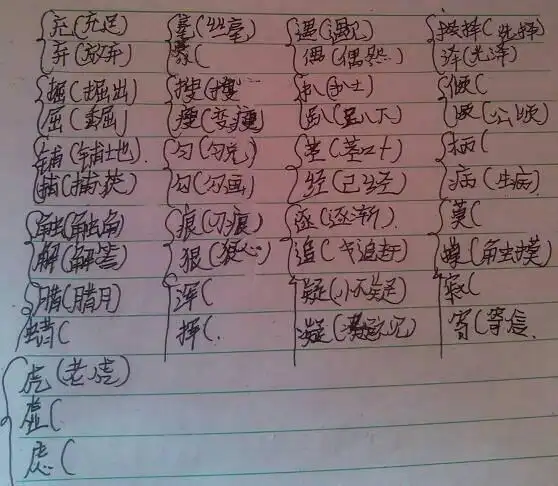 充(充足) 毫(丝毫) 遇(遇见) 择(选择)
弃(放弃) 豪( 偶(偶然) 泽(光泽)
掘(掘出) 搜(搜 扒(扒土) 倾(
屈(委屈) 瘦(变瘦) 趴(趴下) 顷(公顷)
铺(铺地) 匀(匀充) 茎(茎叶) 柄(
捕(捕获) 勾(勾画) 经(已经) 病(生病)
触(触角) 痕(刀痕) 逐(逐渐) 莫(
解(解答) 狠(狠心) 追(追赶) 摸(触摸)
腊(腊月) 浑( 疑( 寂(
蜡( 挥( 凝( 寄(寄信
虎(老虎)
虚(
虑(